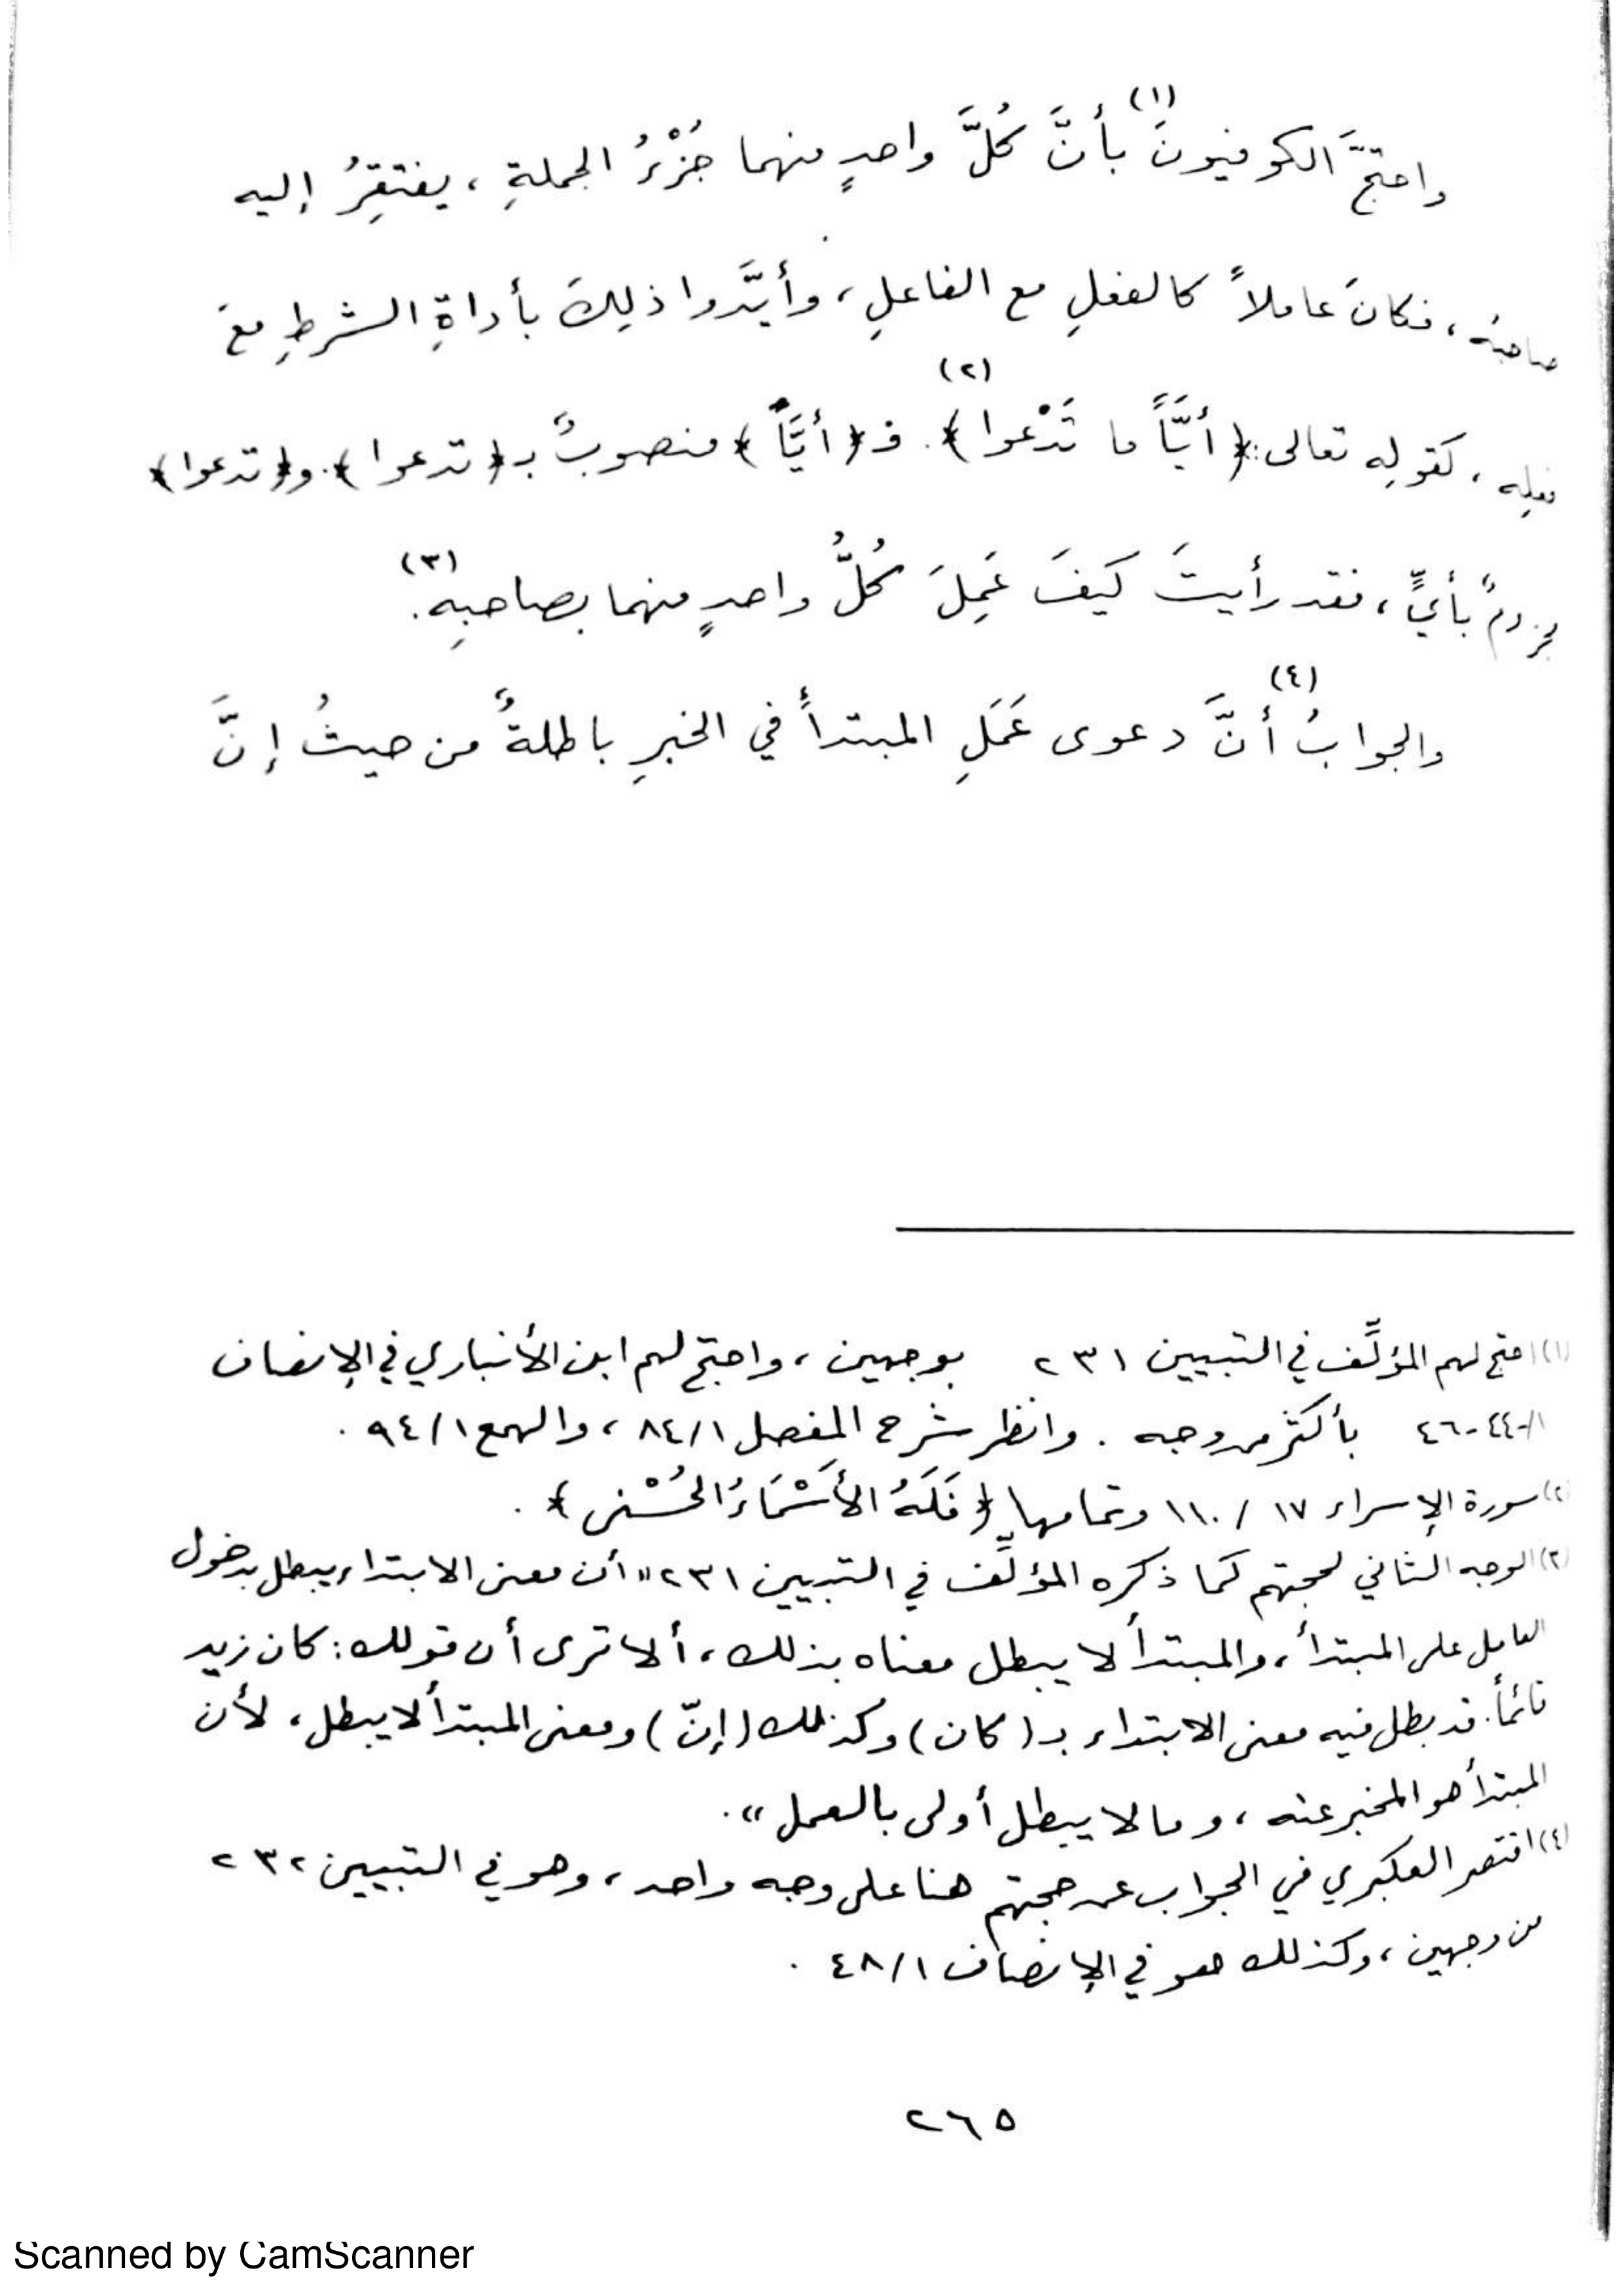 واحتجَّ الكوفيونَ(١) بأنَّ كُلَّ واحدٍ منهما جُزْءُ الجملةِ، يفتقِرُ إليه
صاحبُه، فكانَ عاملاً كالفعلِ مع الفاعلِ، وأيَّدوا ذلِكَ بأداةِ الشرطِ معَ
فعلِه، كقولِه تعالى: ﴿أيَّاً ما تَدْعوا﴾(٢). فـ ﴿أيَّاً﴾ منصوبٌ بـ ﴿تدعوا﴾. و﴿تدعوا﴾
مجزومٌ بأيٍّ، فقد رأيتَ كيَفَ عَمِلَ كُلُّ واحدٍ منهما بصاحبِه(٣).
والجوابُ(٤) أنَّ دعوى عَمَلِ المبتدأ في الخبرِ باطلةٌ من حيثُ إنَّ
(١) احتج لهم المؤلِّف في التبيين ٢٣١ بوجهين، واحتج لهم ابن الأنباري في الإنصاف
١/٤٤-٤٦ بأكثر من وجه. وانظر شرح المفصل ٨٤/١، والهمع ٩٤/١.
(٢) سورة الإسراء ١٧/١١٠ وتمامها ﴿فَلَهُ الأَسْمَاءُ الحُسْنى﴾.
(٣) الوجه الثاني لحجتهم كما ذكره المؤلِّف في التبيين ٢٣١ "أن معنى الابتداء يبطل بدخول
العامل على المبتدأ، والمبتدأ لا يبطل معناه بذلك، ألا ترى أن قولك: كان زيد
قائماً. قد بطل فيه معنى الابتداء بـ (كان) وكذلك (إنّ) ومعنى المبتدأ لا يبطل، لأن
المبتدأ هو المخبر عنه، وما لا يبطل أولى بالعمل".
(٤) اقتصر العكبري في الجواب عن حجتهم هنا على وجه واحد، وهو في التبيين ٢٣٢
من وجهين، وكذلك هو في الإنصاف ٤٨/١.
٢٦٥
Scanned by CamScanner